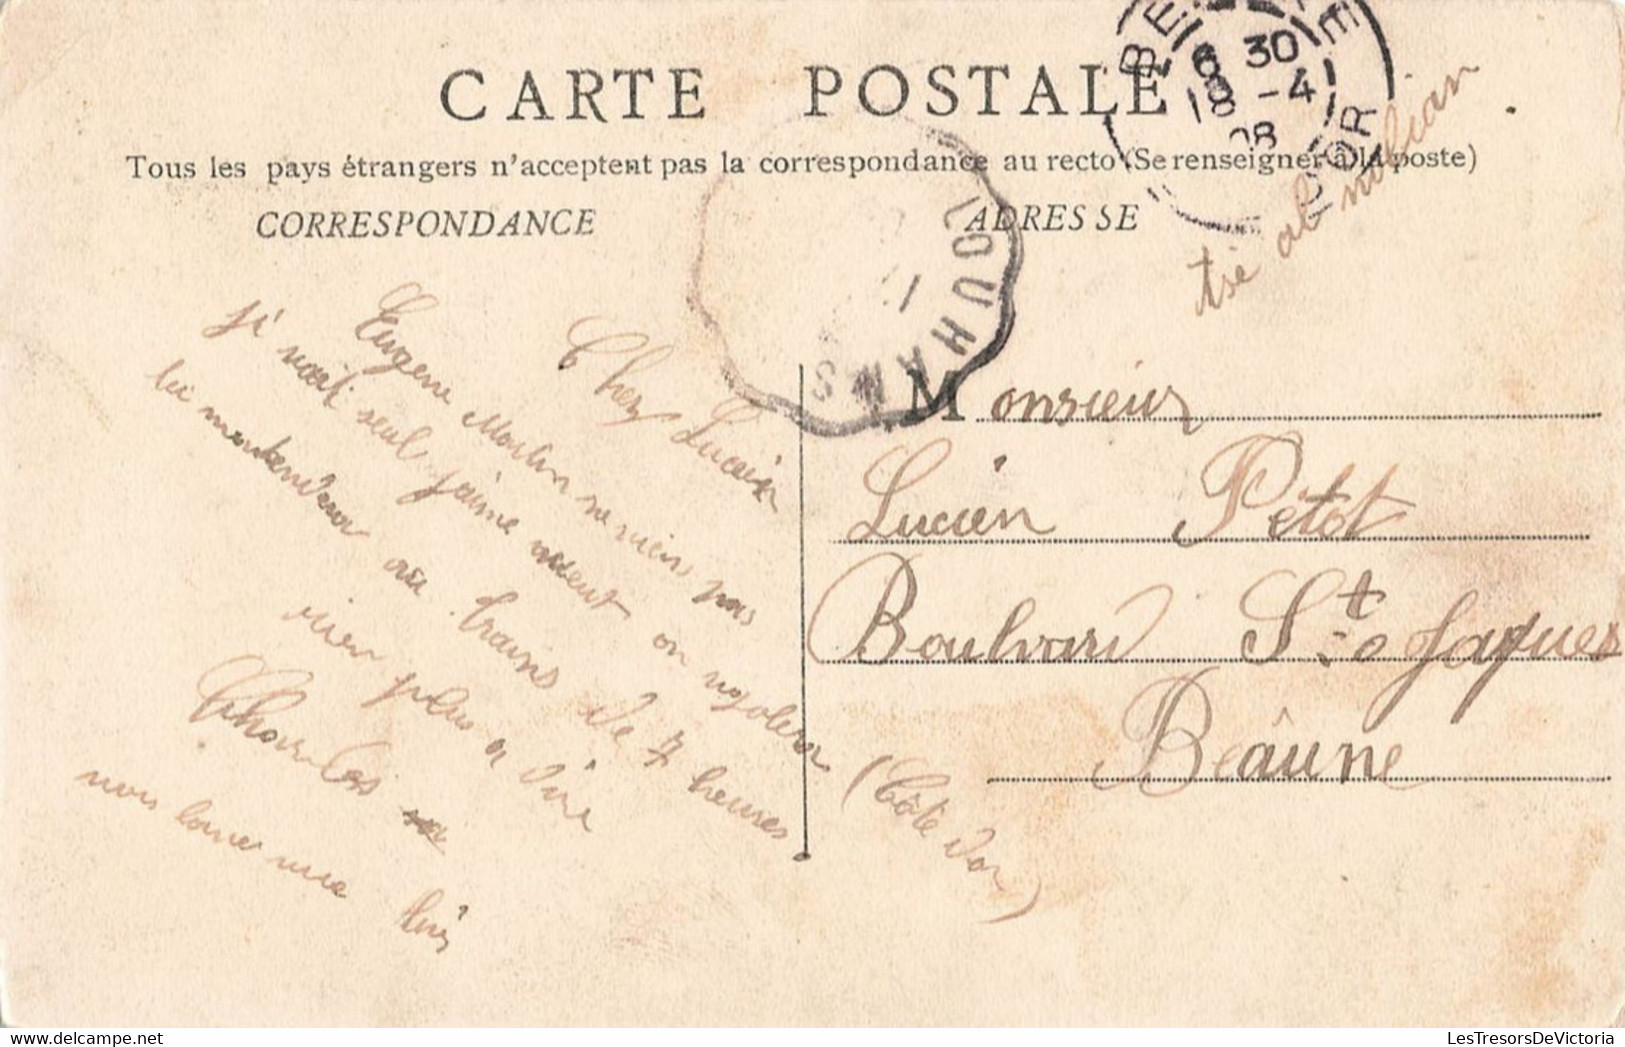 CARTE POSTALE
Tous les pays étrangers n'acceptent pas la correspondance au recto (Se renseigner à la poste)
CORRESPONDANCE
ADRESSE
6 30
18 -4
08
LOUHANS
Chez Lucien
Eugene Morlin ne viens pas
ji vait seul jaime mieut on rigolera
tu mantendera au trains de 7 heures
rien plus a dire
Charles
Monsieur
Lucien Petot
Boulvard St Jaques
Beâune
(Côte d'or)
LesTresorsDeVictoria.com